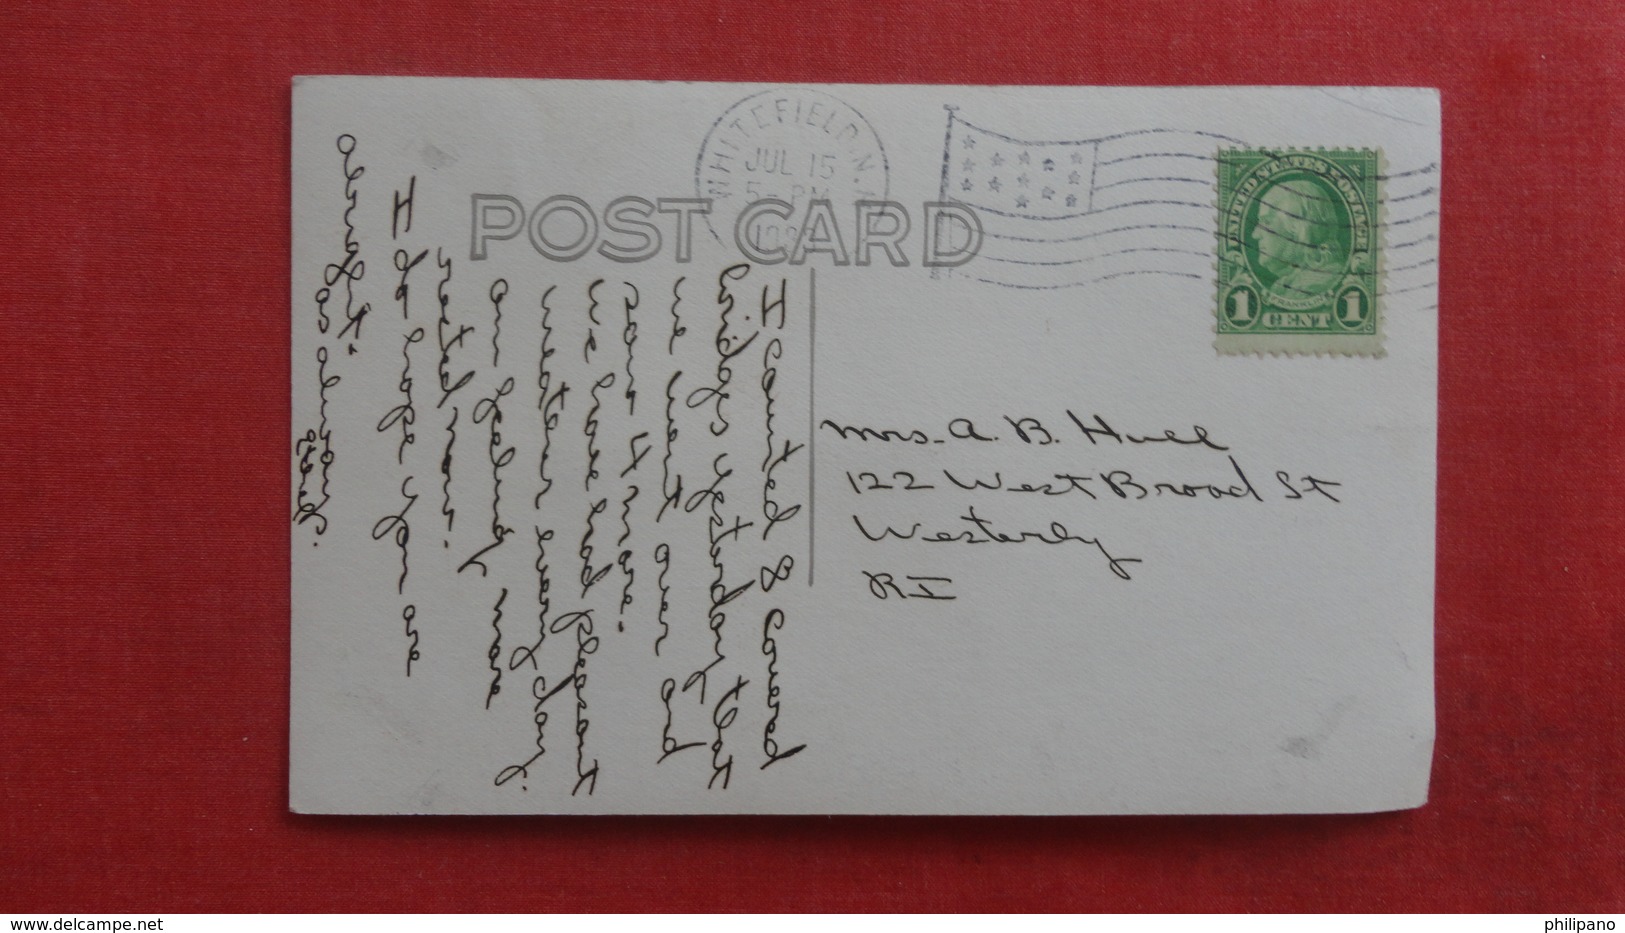 WHITEFIELD. N.H
JUL 15
5- PM
POST CARD
UNITED STATES POSTAGE
FRANKLIN
1 CENT 1
Mrs. A. B. Hull
122 West Broad St
Westerly
RI
I counted 8 covered
bridges yesterday that
we went over and
saw 4 more.
We have had pleasant
weather every day.
am feeling more
rested now.
I do hope you are
alright.
as always
philipano
delcampe.net